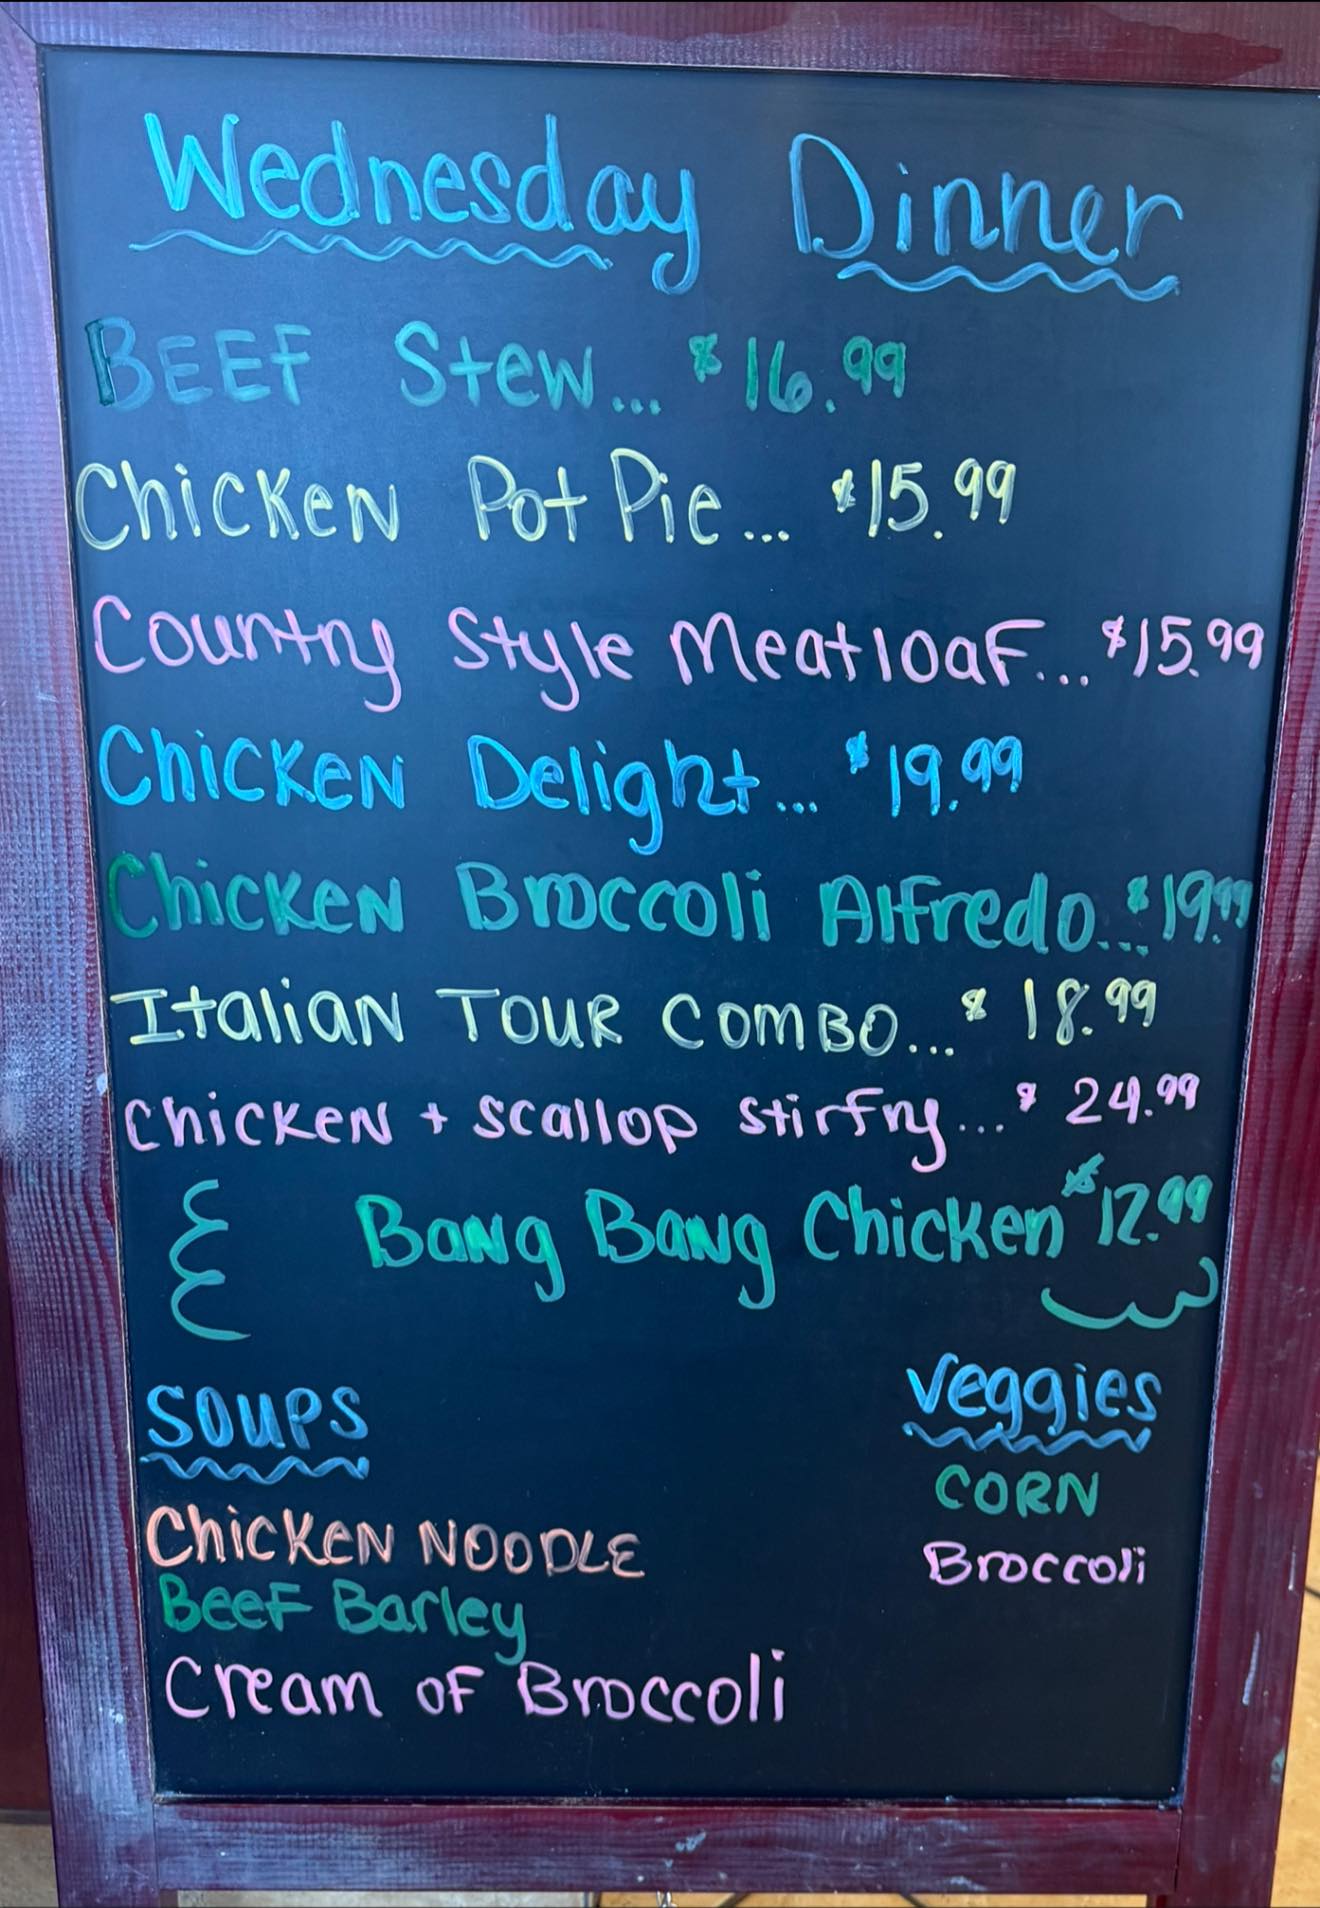 Wednesday Dinner
BEEF Stew... $16.99
Chicken Pot Pie... $15.99
Country Style Meatloaf... $15.99
Chicken Delight... $19.99
Chicken Broccoli Alfredo... $19.99
Italian TOUR COMBO... $18.99
Chicken + Scallop Stirfry... $24.99
Bang Bang Chicken $12.99
SOUPS
Chicken NOODLE
Beef Barley
Cream of Broccoli
Veggies
CORN
Broccoli